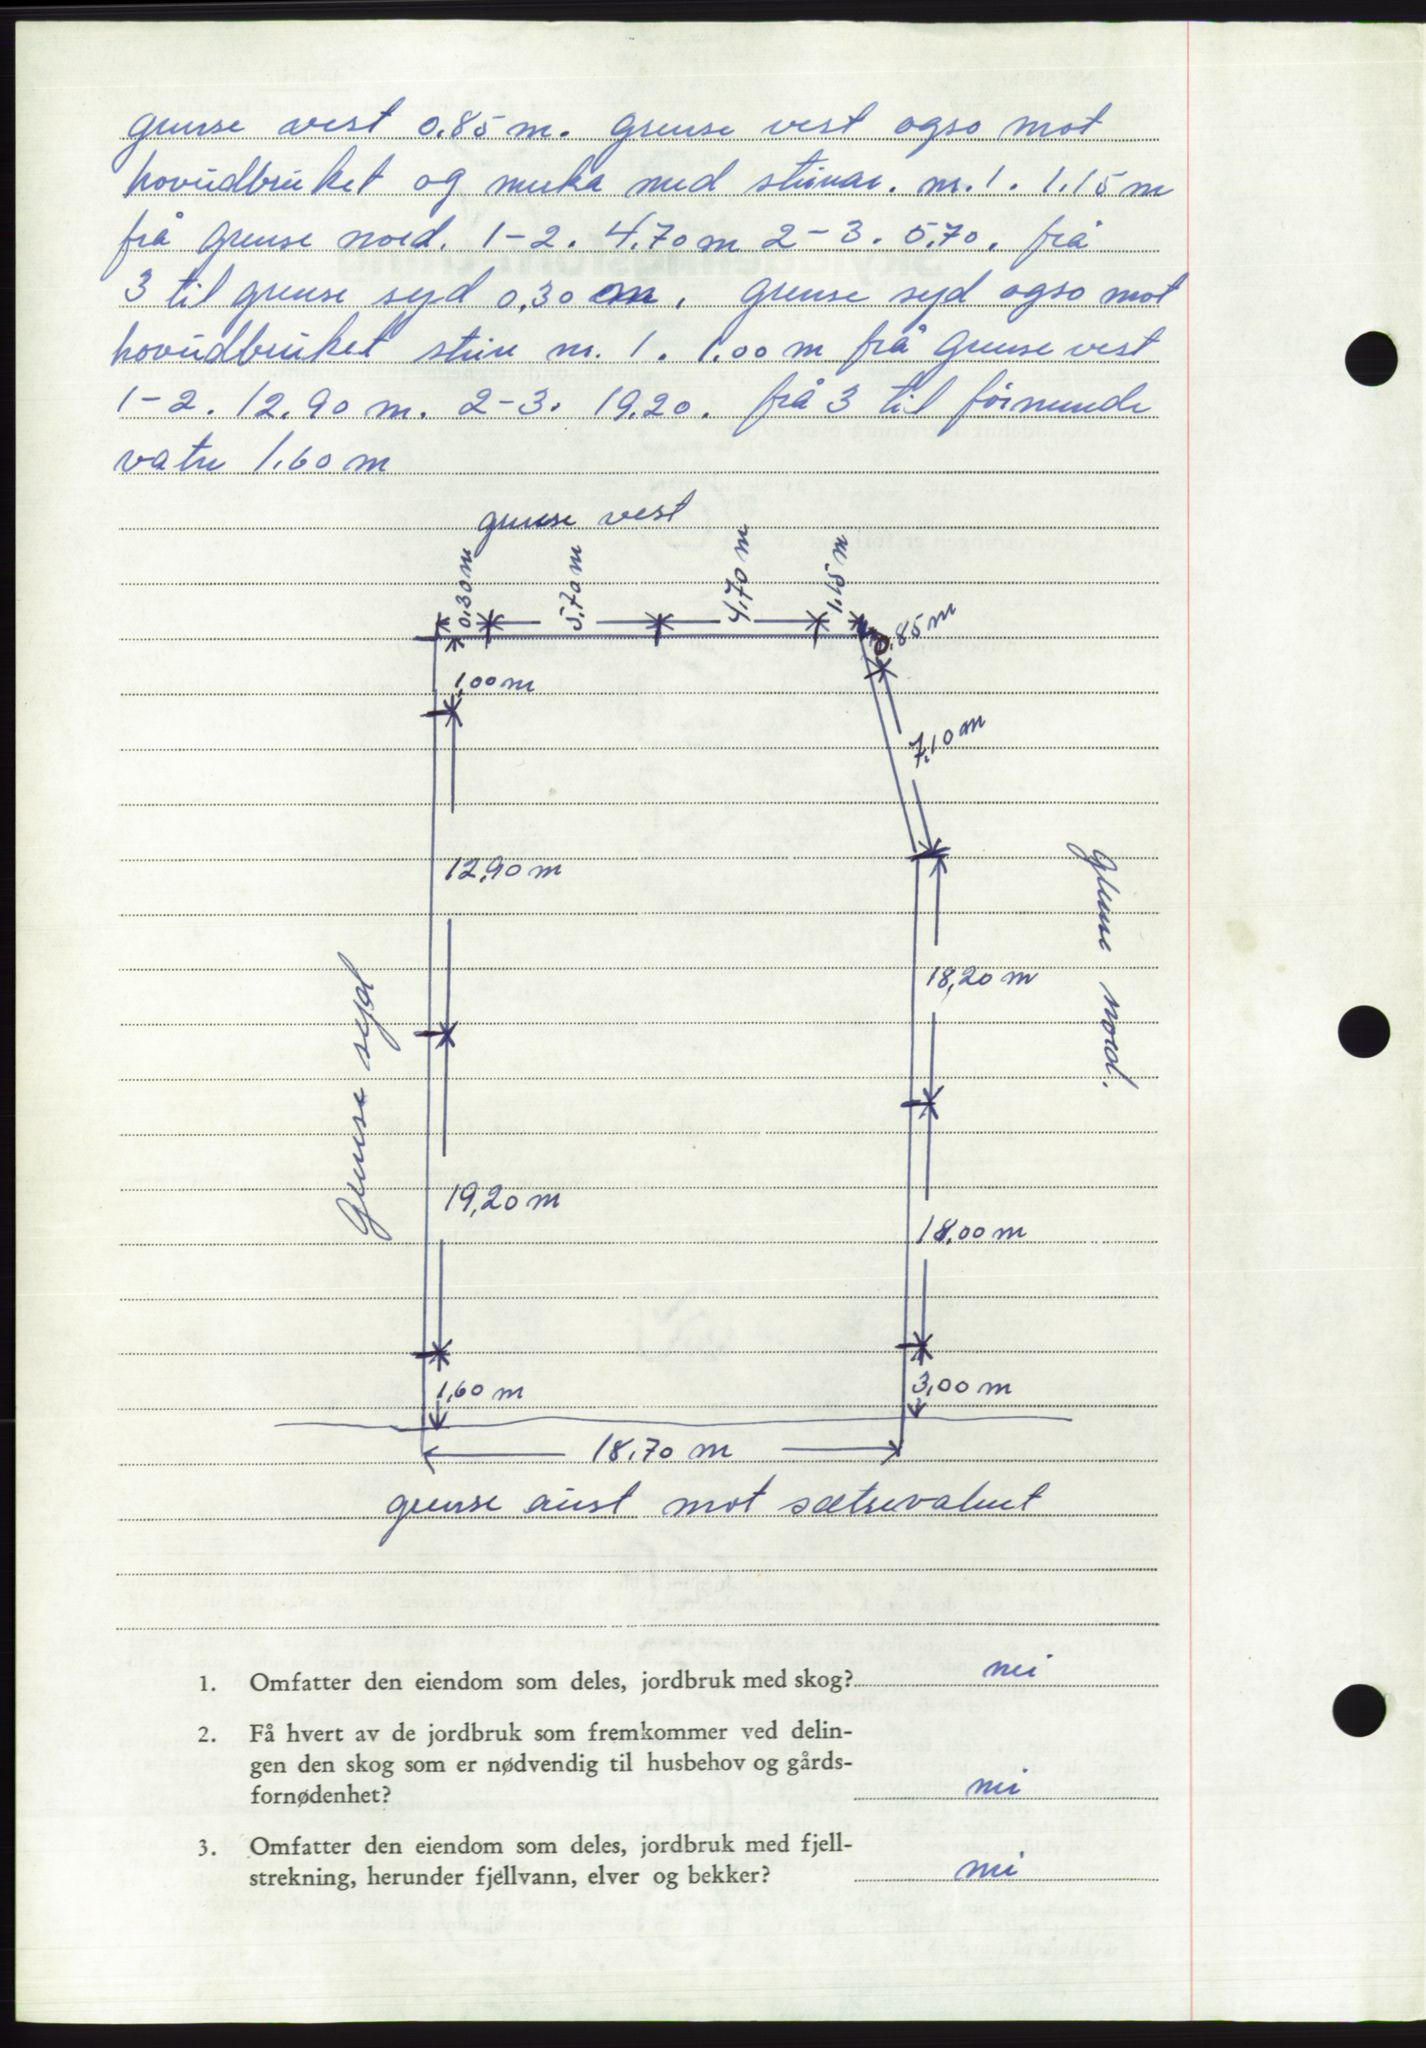 grense vest 0.85 m. grense vest ogso mot
hovudbruket og merka med steinar. nr. 1. 1.15 m
frå grense nord. 1-2. 4.70 m 2-3. 5.70. frå
3 til grense syd 0,30 m. grense syd ogso mot
hovudbruket stein nr. 1. 1.00 m frå grense vest
1-2. 12.90 m. 2-3. 19.20. frå 3 til
vatn 1.60 m
grense vest
0.30 m
5.70 m
4.70 m
1.15 m
0.85 m
1,00 m
7,10 m
12,90 m
18,20 m
grense nord.
Grense syd
19,20 m
18,00 m
1,60 m
3,00 m
18,70 m
grense aust mot sætrevatnet
1. Omfatter den eiendom som deles, jordbruk med skog? nei
2. Få hvert av de jordbruk som fremkommer ved delin-
gen den skog som er nødvendig til husbehov og gårds-
fornødenhet? nei
3. Omfatter den eiendom som deles, jordbruk med fjell-
strekning, herunder fjellvann, elver og bekker? nei